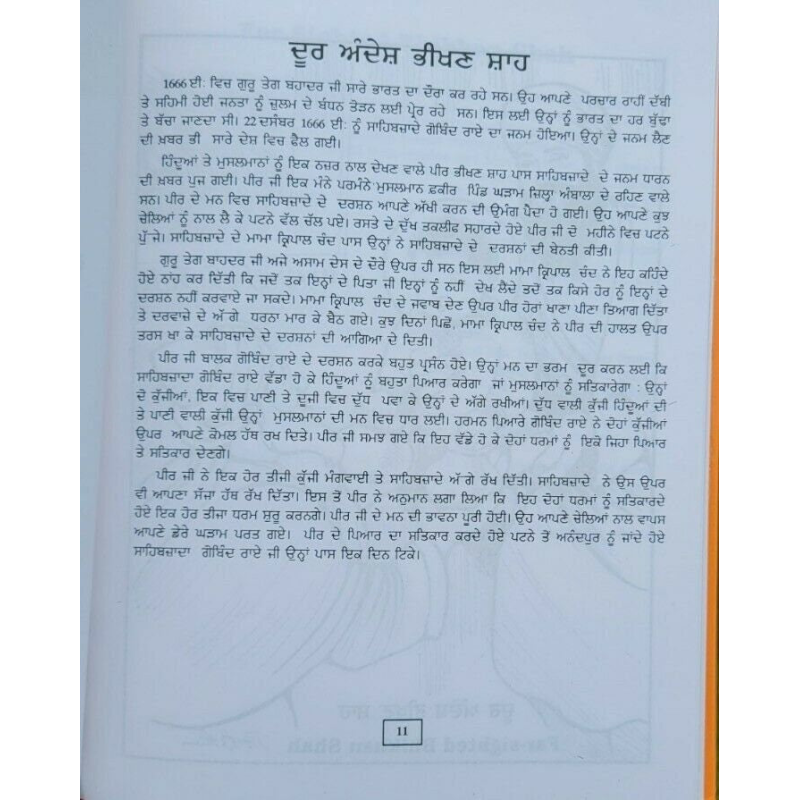 ਦੂਰ ਅੰਦੇਸ਼ ਭੀਖਣ ਸ਼ਾਹ
1666 ਈ: ਵਿਚ ਗੁਰੂ ਤੇਗ ਬਹਾਦਰ ਜੀ ਸਾਰੇ ਭਾਰਤ ਦਾ ਦੌਰਾ ਕਰ ਰਹੇ ਸਨ। ਉਹ ਆਪਣੇ ਪਰਚਾਰ ਰਾਹੀਂ ਦੱਬੀ
ਤੇ ਸਹਿਮੀ ਹੋਈ ਜਨਤਾ ਨੂੰ ਜ਼ੁਲਮ ਦੇ ਬੰਧਨ ਤੋੜਨ ਲਈ ਪ੍ਰੇਰ ਰਹੇ ਸਨ। ਇਸ ਲਈ ਉਨ੍ਹਾਂ ਨੂੰ ਭਾਰਤ ਦਾ ਹਰ ਬੁੱਢਾ
ਤੇ ਬੱਚਾ ਜਾਣਦਾ ਸੀ। 22 ਦਸੰਬਰ 1666 ਈ: ਨੂੰ ਸਾਹਿਬਜ਼ਾਦੇ ਗੋਬਿੰਦ ਰਾਏ ਦਾ ਜਨਮ ਹੋਇਆ। ਉਨ੍ਹਾਂ ਦੇ ਜਨਮ ਲੈਣ
ਦੀ ਖ਼ਬਰ ਭੀ ਸਾਰੇ ਦੇਸ਼ ਵਿਚ ਫੈਲ ਗਈ।
ਹਿੰਦੂਆਂ ਤੇ ਮੁਸਲਮਾਨਾਂ ਨੂੰ ਇਕ ਨਜ਼ਰ ਨਾਲ ਦੇਖਣ ਵਾਲੇ ਪੀਰ ਭੀਖਣ ਸ਼ਾਹ ਪਾਸ ਸਾਹਿਬਜ਼ਾਦੇ ਦੇ ਜਨਮ ਧਾਰਨ
ਦੀ ਖ਼ਬਰ ਪੁਜ ਗਈ। ਪੀਰ ਜੀ ਇਕ ਮੰਨੇ ਪਰਮੰਨੇ ਮੁਸਲਮਾਨ ਫ਼ਕੀਰ ਪਿੰਡ ਘੜਾਮ ਜ਼ਿਲ੍ਹਾ ਅੰਬਾਲਾ ਦੇ ਰਹਿਣ ਵਾਲੇ
ਸਨ। ਪੀਰ ਦੇ ਮਨ ਵਿਚ ਸਾਹਿਬਜ਼ਾਦੇ ਦੇ ਦਰਸ਼ਨ ਆਪਣੇ ਅੱਖੀ ਕਰਨ ਦੀ ਉਮੰਗ ਪੈਦਾ ਹੋ ਗਈ। ਉਹ ਆਪਣੇ ਕੁਝ
ਚੇਲਿਆਂ ਨੂੰ ਨਾਲ ਲੈ ਕੇ ਪਟਨੇ ਵੱਲ ਚੱਲ ਪਏ। ਰਸਤੇ ਦੇ ਦੁੱਖ ਤਕਲੀਫ਼ ਸਹਾਰਦੇ ਹੋਏ ਪੀਰ ਜੀ ਦੋ ਮਹੀਨੇ ਵਿਚ ਪਟਨੇ
ਪੁੱਜੇ। ਸਾਹਿਬਜ਼ਾਦੇ ਦੇ ਮਾਮਾ ਕ੍ਰਿਪਾਲ ਚੰਦ ਪਾਸ ਉਨ੍ਹਾਂ ਨੇ ਸਾਹਿਬਜ਼ਾਦੇ ਦੇ ਦਰਸ਼ਨਾਂ ਦੀ ਬੇਨਤੀ ਕੀਤੀ।
ਗੁਰੂ ਤੇਗ ਬਾਹਦਰ ਜੀ ਅਜੇ ਅਸਾਮ ਦੇਸ ਦੇ ਦੌਰੇ ਉਪਰ ਹੀ ਸਨ ਇਸ ਲਈ ਮਾਮਾ ਕ੍ਰਿਪਾਲ ਚੰਦ ਨੇ ਇਹ ਕਹਿੰਦੇ
ਹੋਏ ਨਾਂਹ ਕਰ ਦਿੱਤੀ ਕਿ ਜਦੋਂ ਤਕ ਇਨ੍ਹਾਂ ਦੇ ਪਿਤਾ ਜੀ ਇਨ੍ਹਾਂ ਨੂੰ ਨਹੀਂ ਦੇਖ ਲੈਂਦੇ ਤਦੋਂ ਤਕ ਕਿਸੇ ਹੋਰ ਨੂੰ ਇਨ੍ਹਾਂ ਦੇ
ਦਰਸ਼ਨ ਨਹੀਂ ਕਰਵਾਏ ਜਾ ਸਕਦੇ। ਮਾਮਾ ਕ੍ਰਿਪਾਲ ਚੰਦ ਦੇ ਜਵਾਬ ਦੇਣ ਉਪਰ ਪੀਰ ਹੋਰਾਂ ਖਾਣਾ ਪੀਣਾ ਤਿਆਗ ਦਿੱਤਾ
ਤੇ ਦਰਵਾਜ਼ੇ ਦੇ ਅੱਗੇ ਧਰਨਾ ਮਾਰ ਕੇ ਬੈਠ ਗਏ। ਕੁਝ ਦਿਨਾਂ ਪਿਛੋਂ, ਮਾਮਾ ਕ੍ਰਿਪਾਲ ਚੰਦ ਨੇ ਪੀਰ ਦੀ ਹਾਲਤ ਉਪਰ
ਤਰਸ ਖਾ ਕੇ ਸਾਹਿਬਜ਼ਾਦੇ ਦੇ ਦਰਸ਼ਨਾਂ ਦੀ ਆਗਿਆ ਦੇ ਦਿਤੀ।
ਪੀਰ ਜੀ ਬਾਲਕ ਗੋਬਿੰਦ ਰਾਏ ਦੇ ਦਰਸ਼ਨ ਕਰਕੇ ਬਹੁਤ ਪ੍ਰਸੰਨ ਹੋਏ। ਉਨ੍ਹਾਂ ਮਨ ਦਾ ਭਰਮ ਦੂਰ ਕਰਨ ਲਈ ਕਿ
ਸਾਹਿਬਜ਼ਾਦਾ ਗੋਬਿੰਦ ਰਾਏ ਵੱਡਾ ਹੋ ਕੇ ਹਿੰਦੂਆਂ ਨੂੰ ਬਹੁਤਾ ਪਿਆਰ ਕਰੇਗਾ ਜਾਂ ਮੁਸਲਮਾਨਾਂ ਨੂੰ ਸਤਿਕਾਰੇਗਾ : ਉਨ੍ਹਾਂ
ਦੋ ਕੁੱਜੀਆਂ, ਇਕ ਵਿਚ ਪਾਣੀ ਤੇ ਦੂਜੀ ਵਿਚ ਦੁੱਧ ਪਵਾ ਕੇ ਉਨ੍ਹਾਂ ਦੇ ਅੱਗੇ ਰਖੀਆਂ। ਦੁੱਧ ਵਾਲੀ ਕੁੱਜੀ ਹਿੰਦੂਆਂ ਦੀ
ਤੇ ਪਾਣੀ ਵਾਲੀ ਕੁੱਜੀ ਉਨ੍ਹਾਂ ਮੁਸਲਮਾਨਾਂ ਦੀ ਮਨ ਵਿਚ ਧਾਰ ਲਈ। ਹਰਮਨ ਪਿਆਰੇ ਗੋਬਿੰਦ ਰਾਏ ਨੇ ਦੋਹਾਂ ਕੁੱਜੀਆਂ
ਉਪਰ ਆਪਣੇ ਕੋਮਲ ਹੱਥ ਰਖ ਦਿਤੇ। ਪੀਰ ਜੀ ਸਮਝ ਗਏ ਕਿ ਇਹ ਵੱਡੇ ਹੋ ਕੇ ਦੋਹਾਂ ਧਰਮਾਂ ਨੂੰ ਇਕੋ ਜਿਹਾ ਪਿਆਰ
ਤੇ ਸਤਿਕਾਰ ਦੇਣਗੇ।
ਪੀਰ ਜੀ ਨੇ ਇਕ ਹੋਰ ਤੀਜੀ ਕੁੱਜੀ ਮੰਗਵਾਈ ਤੇ ਸਾਹਿਬਜ਼ਾਦੇ ਅੱਗੇ ਰੱਖ ਦਿੱਤੀ। ਸਾਹਿਬਜ਼ਾਦੇ ਨੇ ਉਸ ਉਪਰ
ਵੀ ਆਪਣਾ ਸੱਜਾ ਹੱਥ ਰੱਖ ਦਿੱਤਾ। ਇਸ ਤੋਂ ਪੀਰ ਨੇ ਅਨੁਮਾਨ ਲਗਾ ਲਿਆ ਕਿ ਇਹ ਦੋਹਾਂ ਧਰਮਾਂ ਨੂੰ ਸਤਿਕਾਰਦੇ
ਹੋਏ ਇਕ ਹੋਰ ਤੀਜਾ ਧਰਮ ਸ਼ੁਰੂ ਕਰਨਗੇ। ਪੀਰ ਜੀ ਦੇ ਮਨ ਦੀ ਭਾਵਨਾ ਪੂਰੀ ਹੋਈ। ਉਹ ਆਪਣੇ ਚੇਲਿਆਂ ਨਾਲ ਵਾਪਸ
ਆਪਣੇ ਡੇਰੇ ਘੜਾਮ ਪਰਤ ਗਏ। ਪੀਰ ਦੇ ਪਿਆਰ ਦਾ ਸਤਿਕਾਰ ਕਰਦੇ ਹੋਏ ਪਟਨੇ ਤੋਂ ਅਨੰਦਪੁਰ ਨੂੰ ਜਾਂਦੇ ਹੋਏ
ਸਾਹਿਬਜ਼ਾਦਾ ਗੋਬਿੰਦ ਰਾਏ ਜੀ ਉਨ੍ਹਾਂ ਪਾਸ ਇਕ ਦਿਨ ਟਿਕੇ।
11